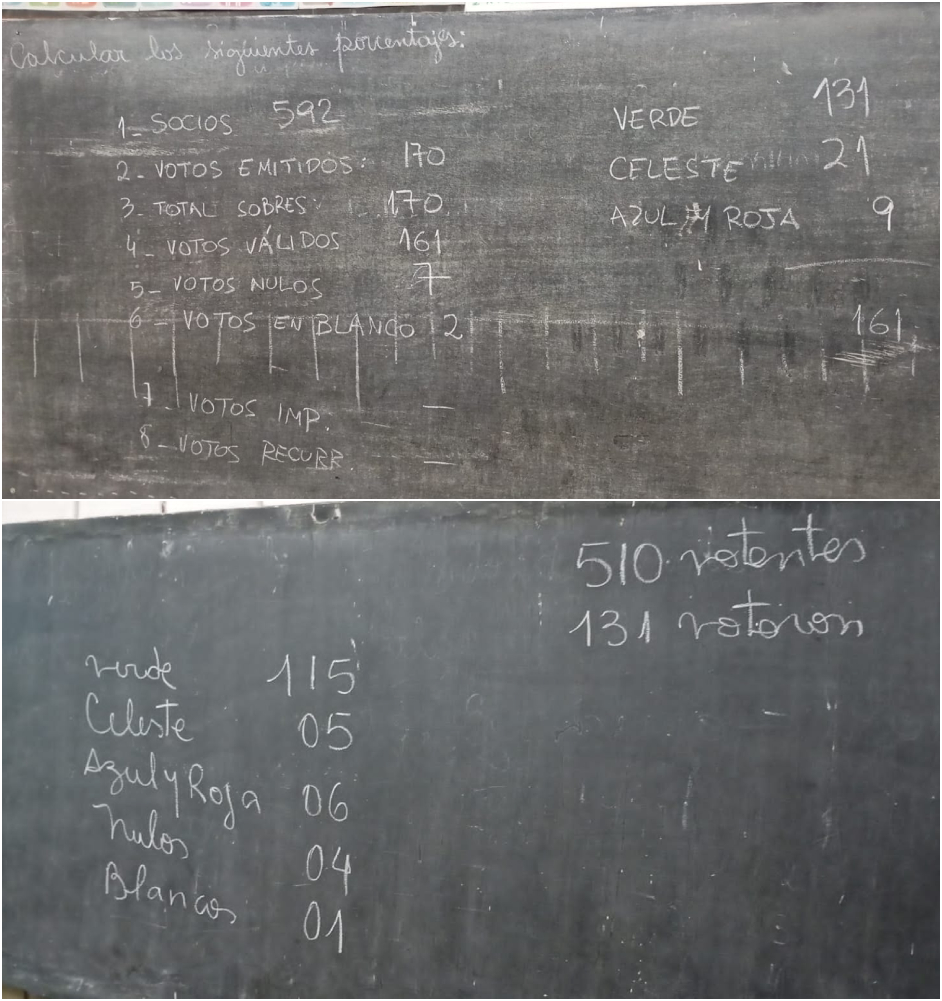 Calcular los siguientes porcentajes:
1_ SOCIOS 592
2- VOTOS EMITIDOS: 170
3- TOTAL SOBRES: 170
4_ VOTOS VÁLIDOS 161
5_ VOTOS NULOS 7
6 - VOTOS EN BLANCO 2
7- VOTOS IMP. —
8-VOTOS RECURR. —
VERDE 131
CELESTE 21
AZUL Y ROJA 9
161
510 votantes
131 votaron
verde 115
Celeste 05
Azul y Roja 06
Nulos 04
Blancos 01